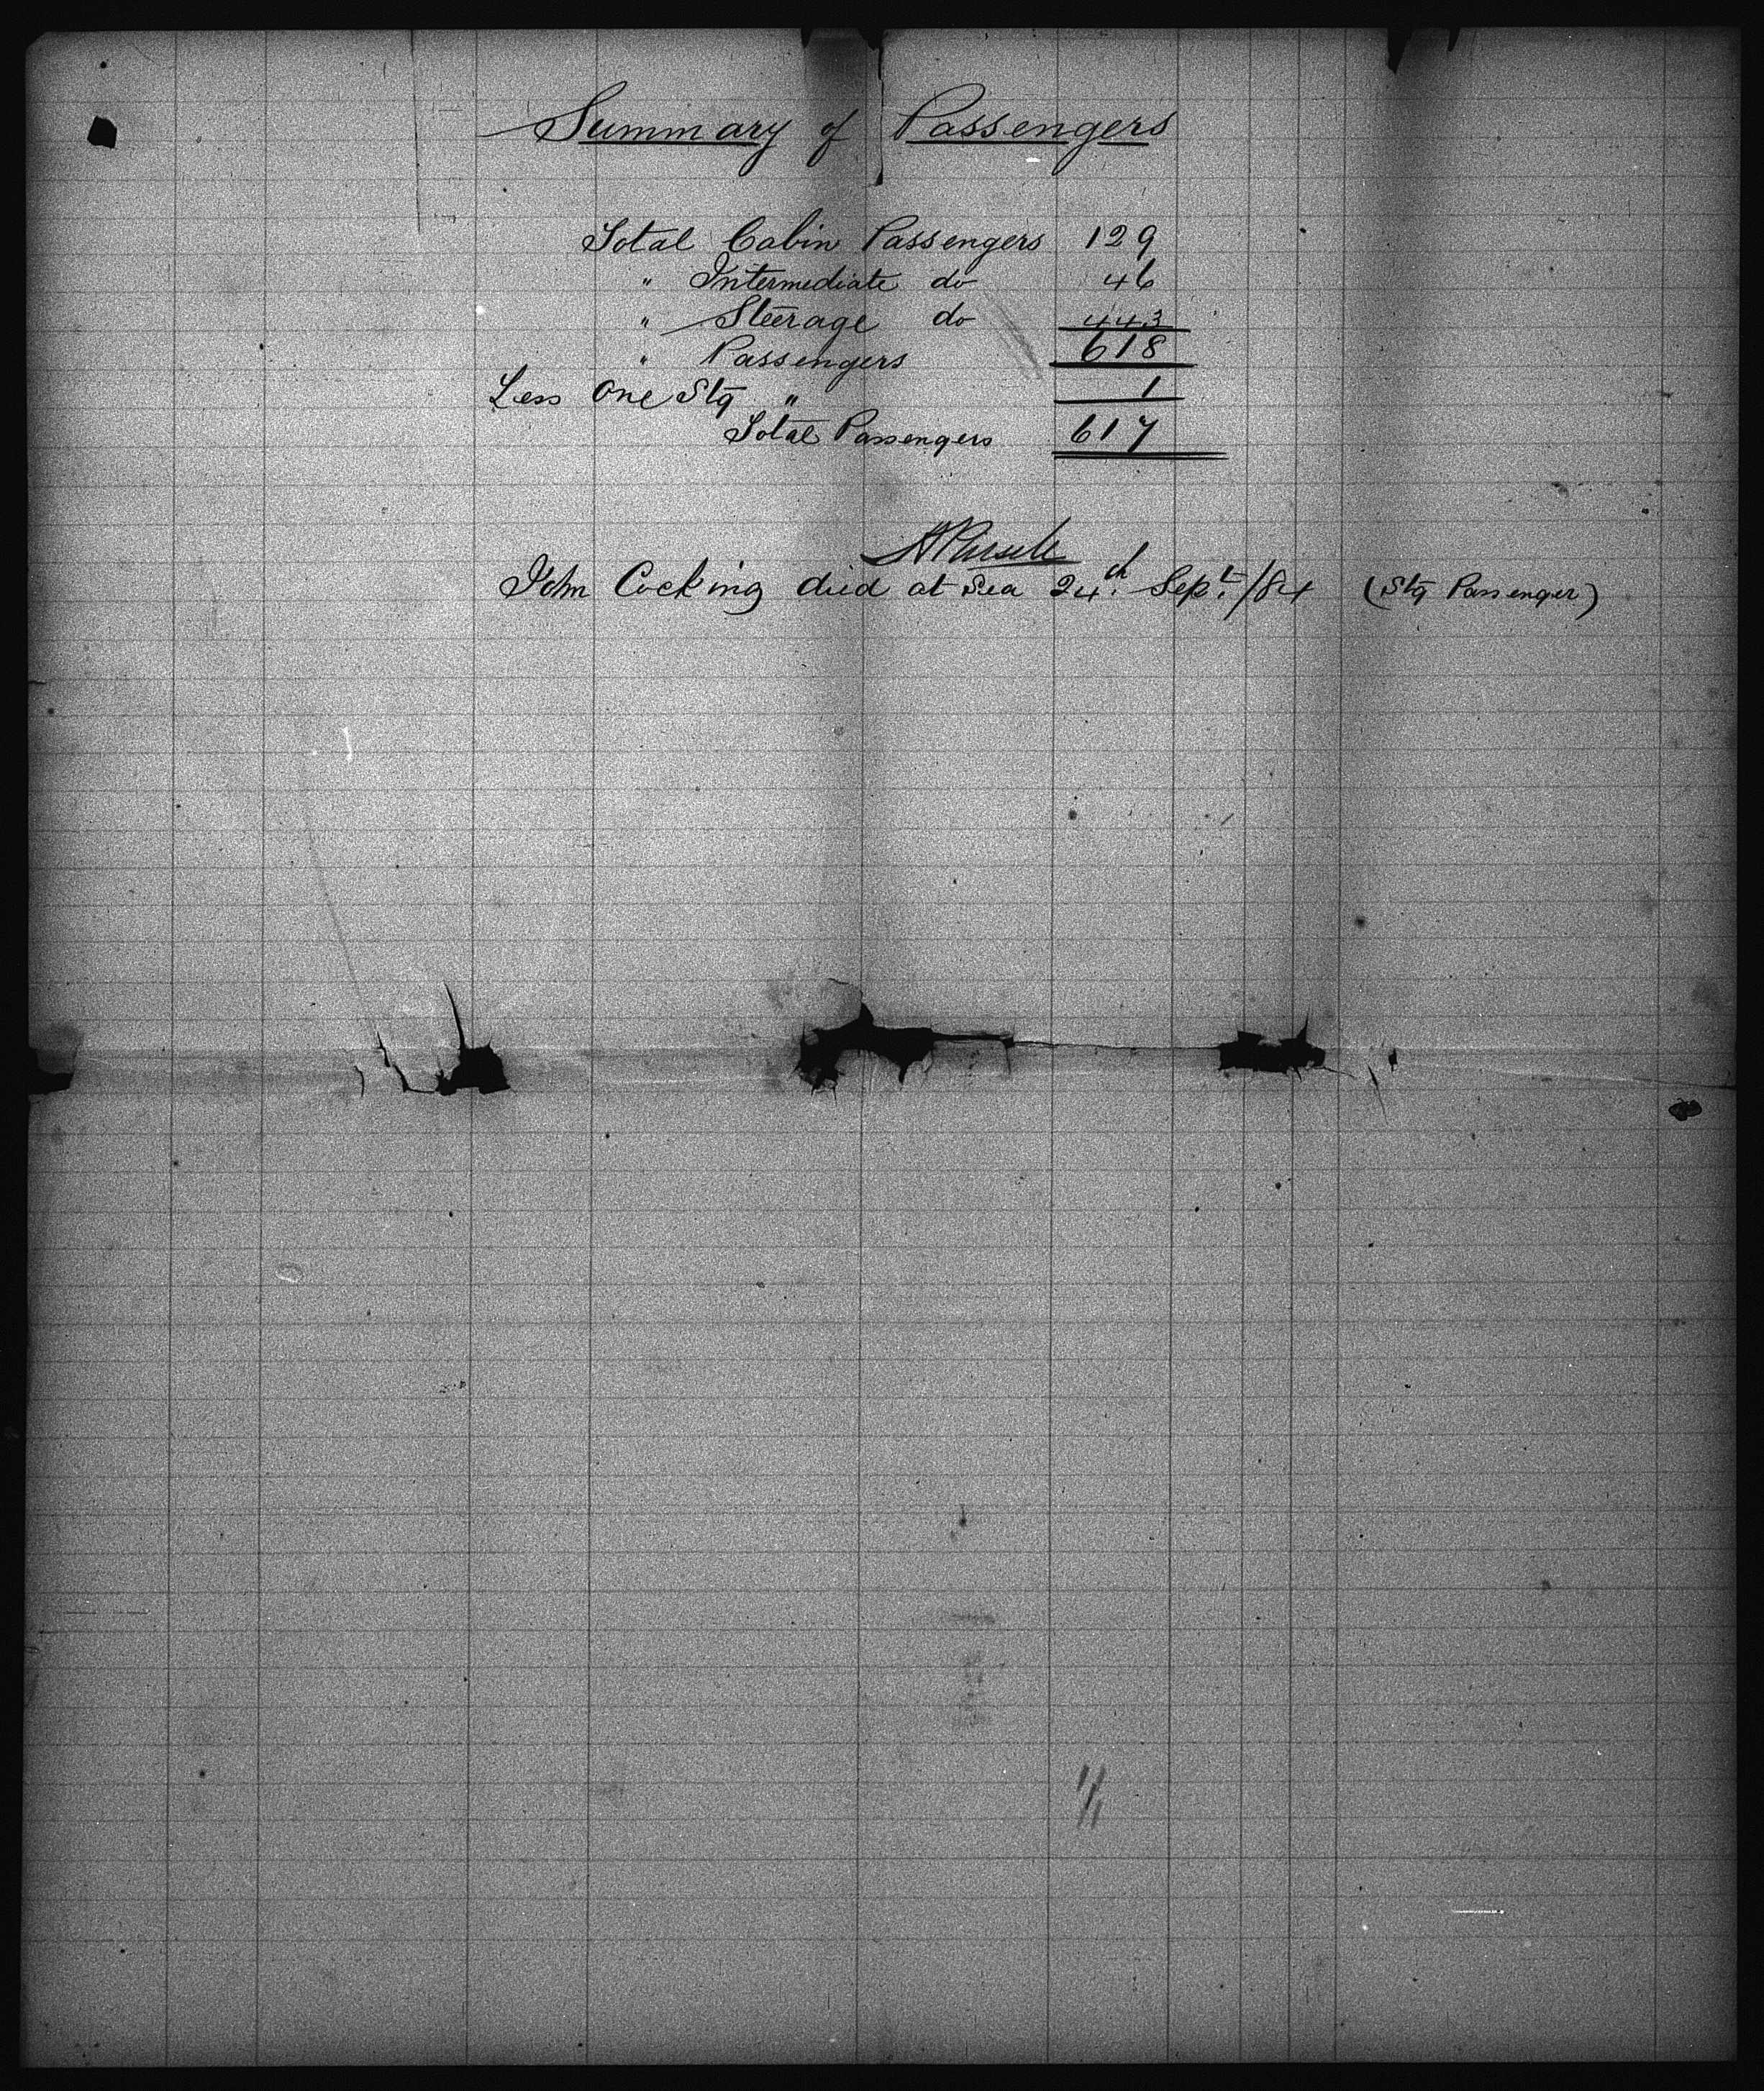 Summary of Passengers
Total Cabin Passengers 129
" Intermediate do 46
" Steerage do 443
" Passengers 618
Less One Stg " 1
Total Passengers 617
John Cocking died at Sea 24th Sept/84 (Stg Passenger)